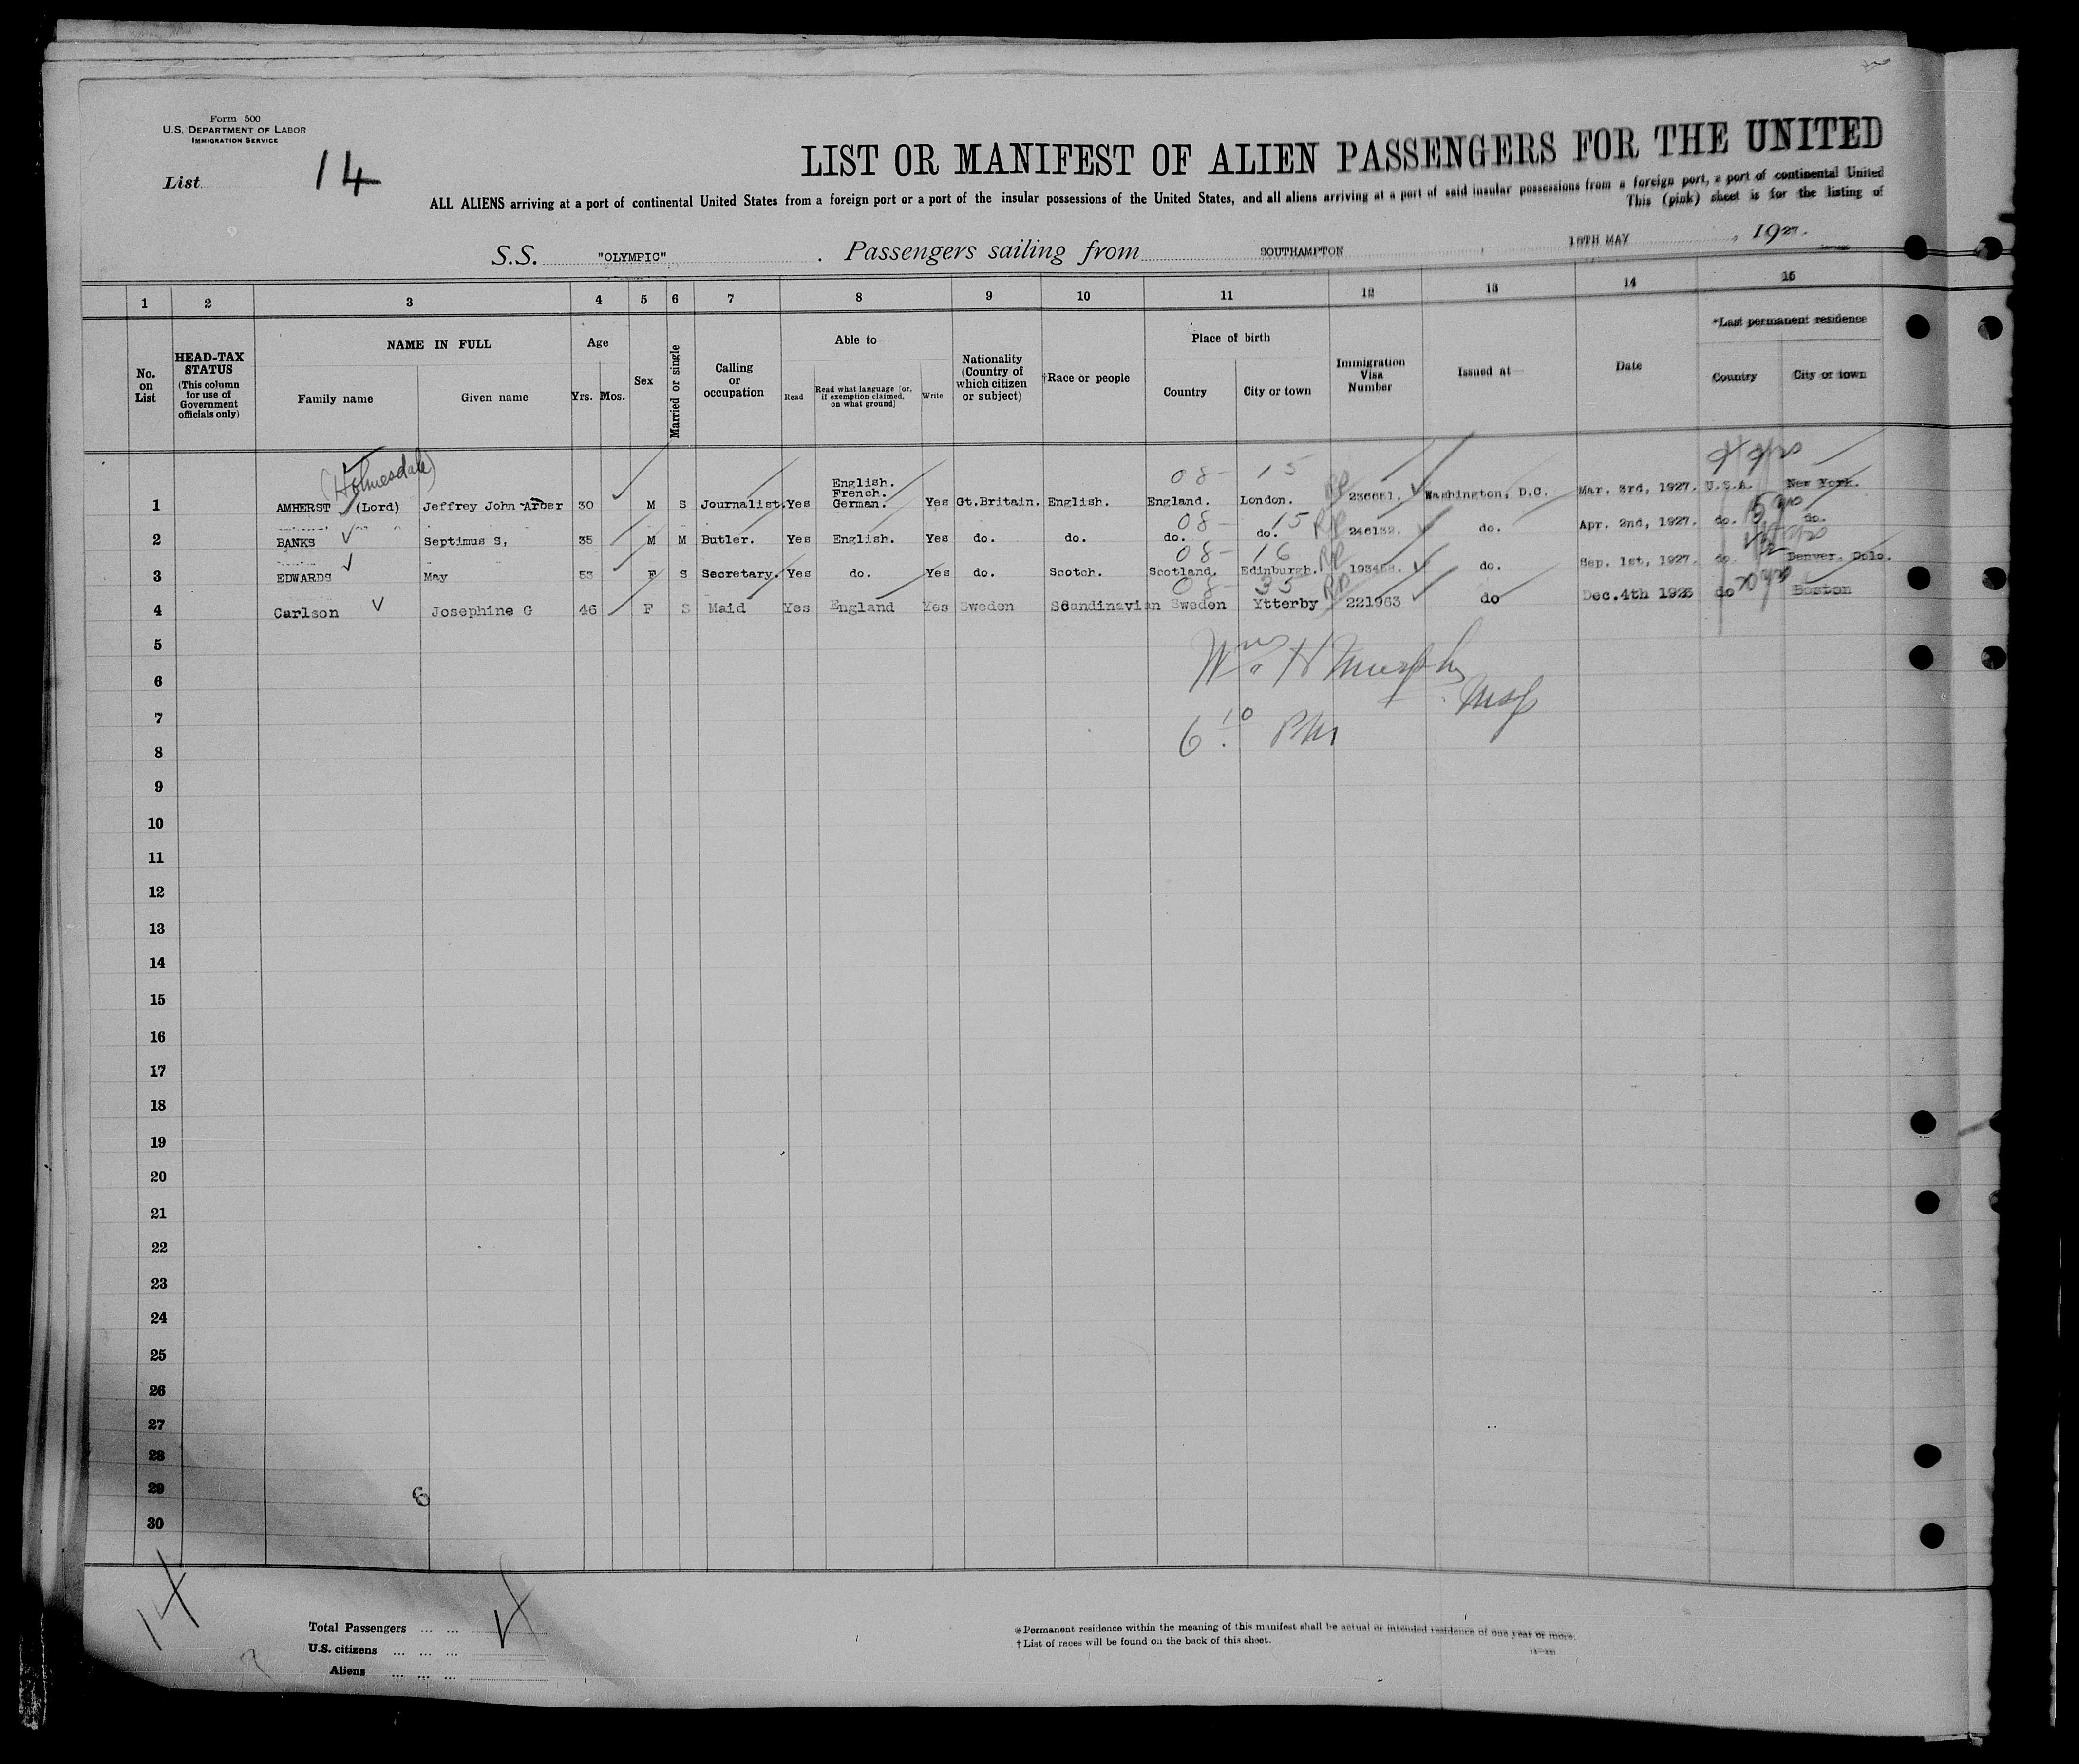 Form 500
U.S. DEPARTMENT OF LABOR
IMMIGRATION SERVICE
List 14
LIST OR MANIFEST OF ALIEN PASSENGERS FOR THE UNITED
ALL ALIENS arriving at a port of continental United States from a foreign port or a port of the insular possessions of the United States, and all aliens arriving at a port of said insular possessions from a foreign port, a port of continental United
This (pink) sheet is for the listing of
S.S. "OLYMPIC" . Passengers sailing from SOUTHAMPTON MAY , 1927.
1 2 3 4 5 6 7 8 9 10 11 12 13 14 15
No. on List
HEAD-TAX STATUS (This column for use of Government officials only)
NAME IN FULL
Family name Given name
Age
Yrs. Mos.
Sex
Married or single
Calling or occupation
Able to—
Read Read what language [or, if exemption claimed, on what ground] Write
Nationality (Country of which citizen or subject)
†Race or people
Place of birth
Country City or town
Immigration Visa Number
Issued at—
Date
*Last permanent residence
Country City or town
(Holmesdale)
08- 15
1 AMHERST (Lord) Jeffrey John Arber 30 M S Journalist. Yes English. French. German. Yes Gt.Britain. English. England. London. 236651. Washington, D.C. Mar. 3rd, 1927. U.S.A. New York.
08- 15
2 BANKS Septimus S, 35 M M Butler. Yes English. Yes do. do. do. do. 246132. do. Apr. 2nd, 1927. do. do.
08- 16
3 EDWARDS May 53 F S Secretary. Yes do. Yes do. Scotch. Scotland. Edinburgh. do. Sep. 1st, 1927. do. Denver. Colo.
08- 35
4 Carlson Josephine G 46 F S Maid Yes England Yes Sweden Scandinavian Sweden Ytterby 221963 do Dec.4th 1926 do Boston
5
Wm H Murphy
6
7
6:10 PM
8
9
10
11
12
13
14
15
16
17
18
19
20
21
22
23
24
25
26
27
28
29
6
30
14
Total Passengers ... ...
U.S. citizens ... ... ...
Aliens ... ... ...
*Permanent residence within the meaning of this manifest shall be actual or intended residence of one year or more.
†List of races will be found on the back of this sheet.